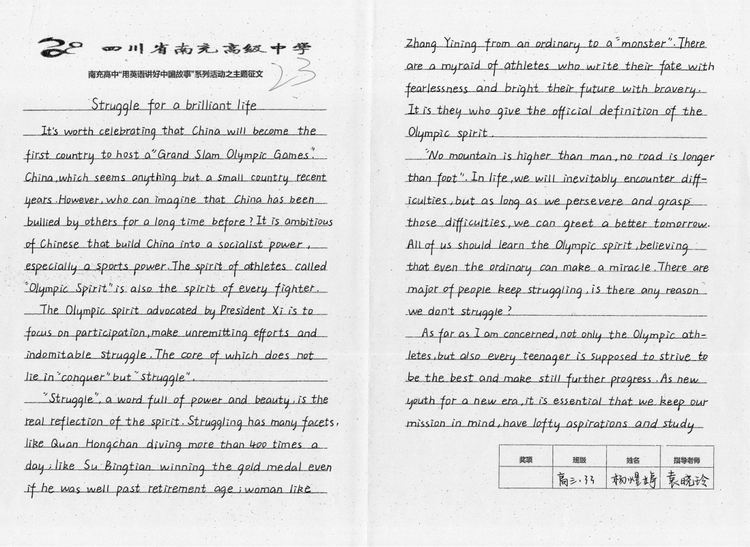 四川省南充高级中学
南充高中“用英语讲好中国故事”系列活动之主题征文
23
Struggle for a brilliant life
It's worth celebrating that China will become the
first country to host a "Grand Slam Olympic Games".
China, which seems anything but a small country recent
years. However, who can imagine that China has been
bullied by others for a long time before? It is ambitious
of Chinese that build China into a socialist power,
especially a sports power. The spirit of athletes called
"Olympic Spirit" is also the spirit of every fighter.
The Olympic spirit advocated by President Xi is to
focus on participation, make unremitting efforts and
indomitable struggle. The core of which does not
lie in "conquer" but "struggle".
"Struggle", a word full of power and beauty, is the
real reflection of the spirit. Struggling has many facets,
like Quan Hongchan diving more than 400 times a
day; like Su Bingtian winning the gold medal even
if he was well past retirement age; woman like
Zhang Yining from an ordinary to a "monster". There
are a myraid of athletes who write their fate with
fearlessness and bright their future with bravery.
It is they who give the official definition of the
Olympic spirit.
"No mountain is higher than man, no road is longer
than foot". In life, we will inevitably encounter diff-
iculties, but as long as we persevere and grasp
those difficulties, we can greet a better tomorrow.
All of us should learn the Olympic spirit, believing
that even the ordinary can make a miracle. There are
major of people keep struggling, is there any reason
we don't struggle?
As far as I am concerned, not only the Olympic ath-
letes, but also every teenager is supposed to strive to
be the best and make still further progress. As new
youth for a new era, it is essential that we keep our
mission in mind, have lofty aspirations and study
奖项 班级 姓名 指导老师
高三.33 杨 婷 袁晓玲